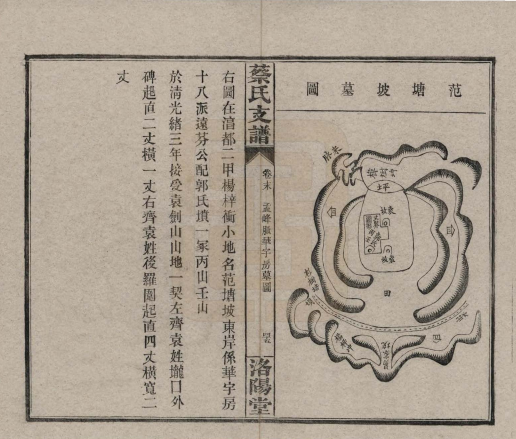 范塘坡墓圖
來脈
田
蔡氏支譜
卷末
洛陽堂
右圖在湻都一甲楊梓衝小地名范塘坡東岸係華字房
十八派遠芬公配郭氏塡一冢丙山壬山
於淸光緒三年接受袁劍山山地一契左齊袁姓壠口外
碑起直二丈橫一丈右齊袁姓後羅圍起直四丈橫寬二
丈